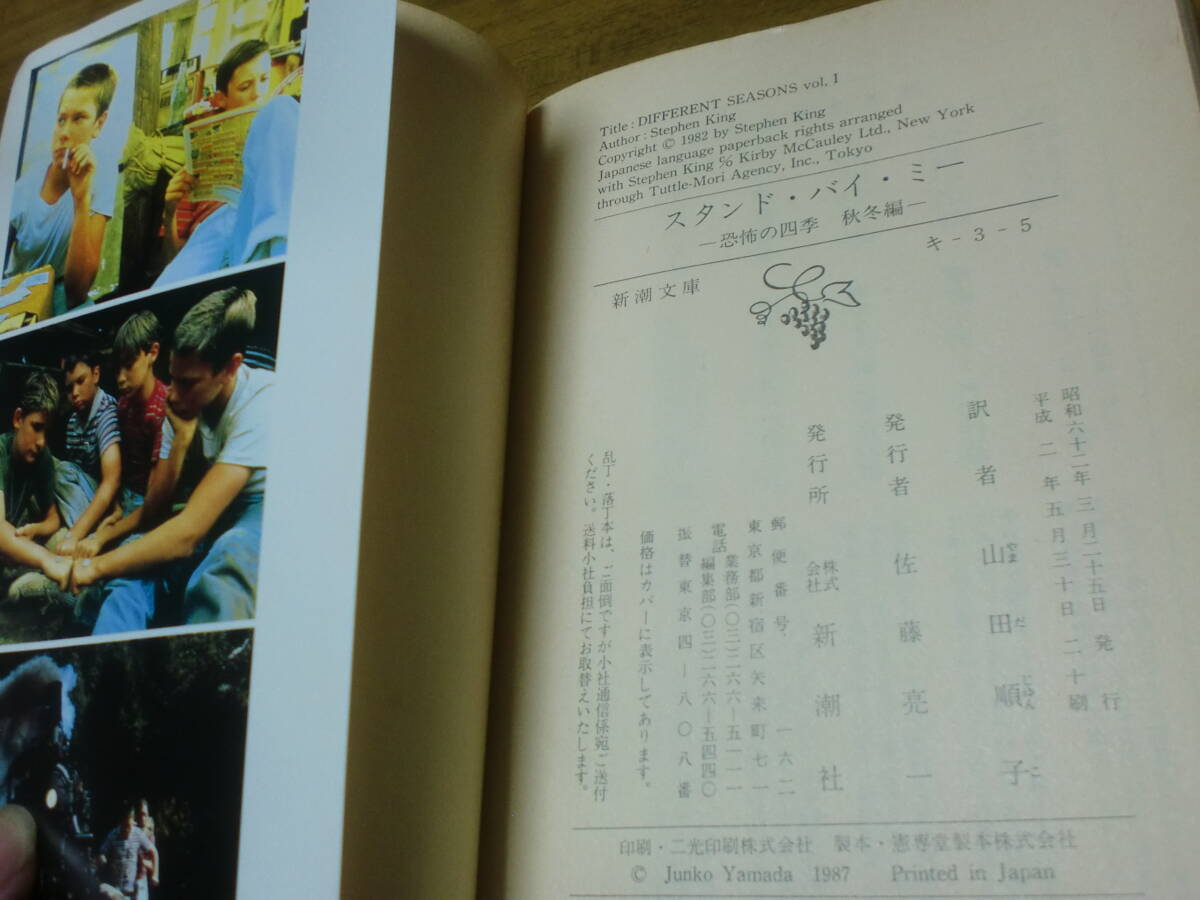 Title : DIFFERENT SEASONS vol. 1
Author : Stephen King
Copyright © 1982 by Stephen King
Japanese language paperback rights arranged
with Stephen King ℅ Kirby McCauley Ltd., New York
through Tuttle-Mori Agency, Inc., Tokyo
スタンド・バイ・ミー
—恐怖の四季 秋冬編—
新潮文庫
キ-3-5
昭和六十二年三月二十五日発行
平成二年五月三十日二十刷
訳者 山田順子
やまだじゅんこ
発行者 佐藤亮一
発行所 株式会社 新潮社
郵便番号 一六二
東京都新宿区矢来町七一
電話 業務部(〇三)二六六—五一一一
編集部(〇三)二六六—五四四〇
振替東京四—八〇八番
価格はカバーに表示してあります。
乱丁・落丁本は、ご面倒ですが小社通信係宛ご送付
ください。送料小社負担にてお取替えいたします。
印刷・二光印刷株式会社 製本・憲専堂製本株式会社
© Junko Yamada 1987 Printed in Japan